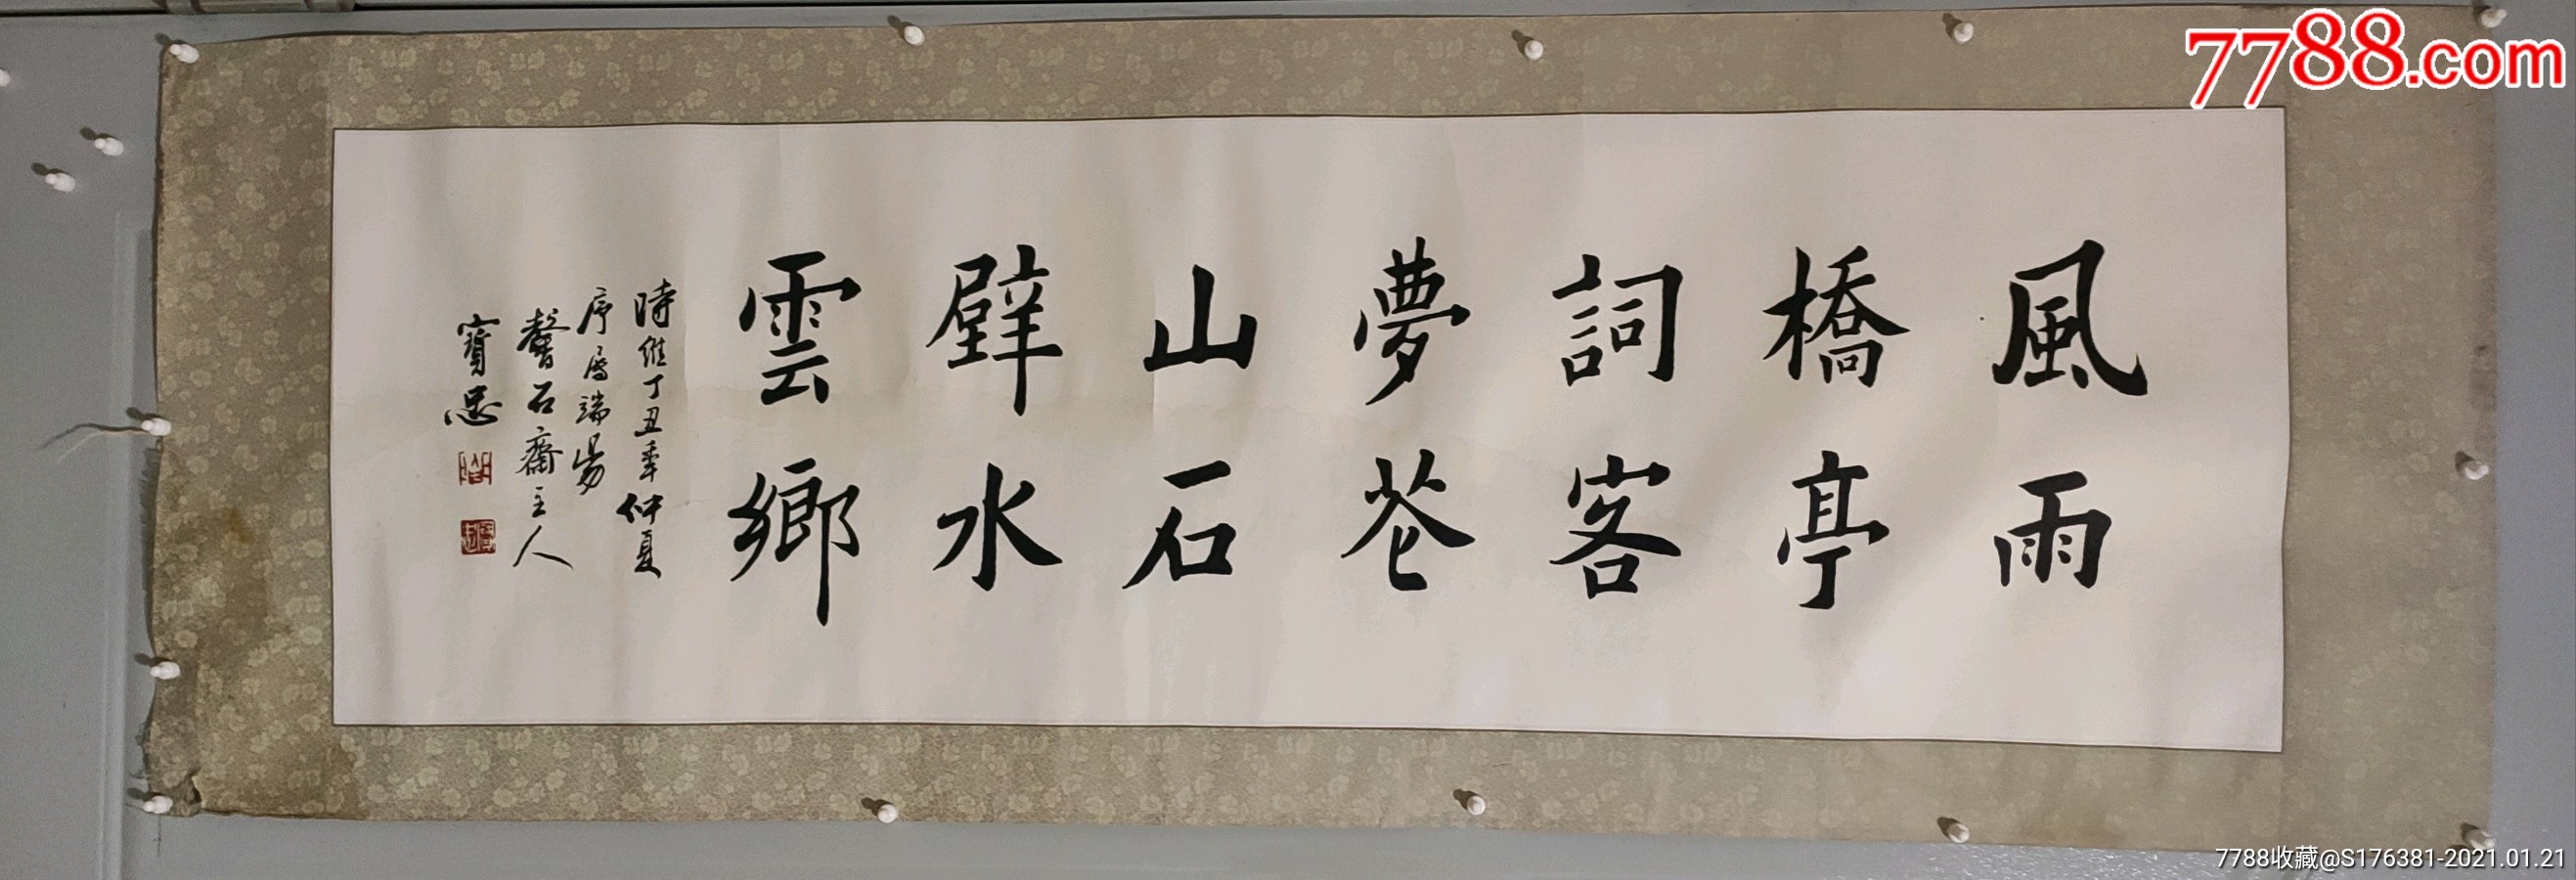 風雨
橋亭
詞客
夢蒼
山石
壁水
雲鄉
時維丁丑年仲夏
序屬端陽
馨石齋主人
寶忠
7788.com
7788收藏@S176381-2021.01.21